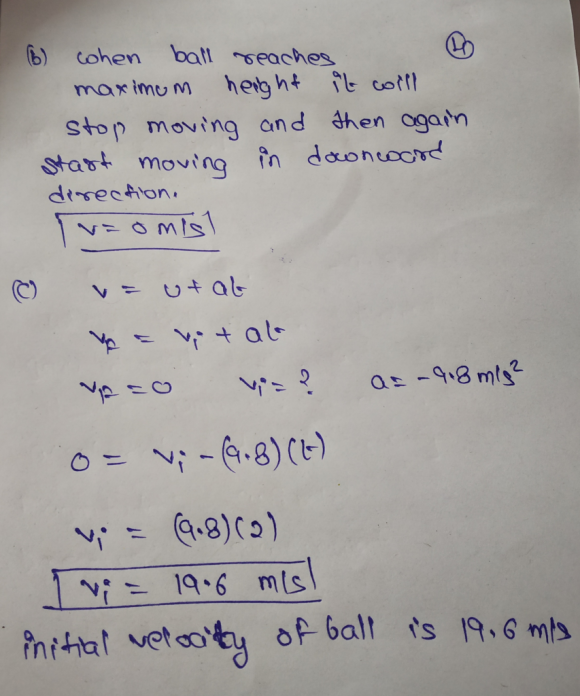 (b) when ball reaches
maximum height it will
stop moving and then again
start moving in downward
direction.
v = 0 m/s
(c) v = u + at
vf = vi + at
vf = 0 vi = ? a = -9.8 m/s²
0 = vi - (9.8) (t)
vi = (9.8) (2)
vi = 19.6 m/s
initial velocity of ball is 19.6 m/s